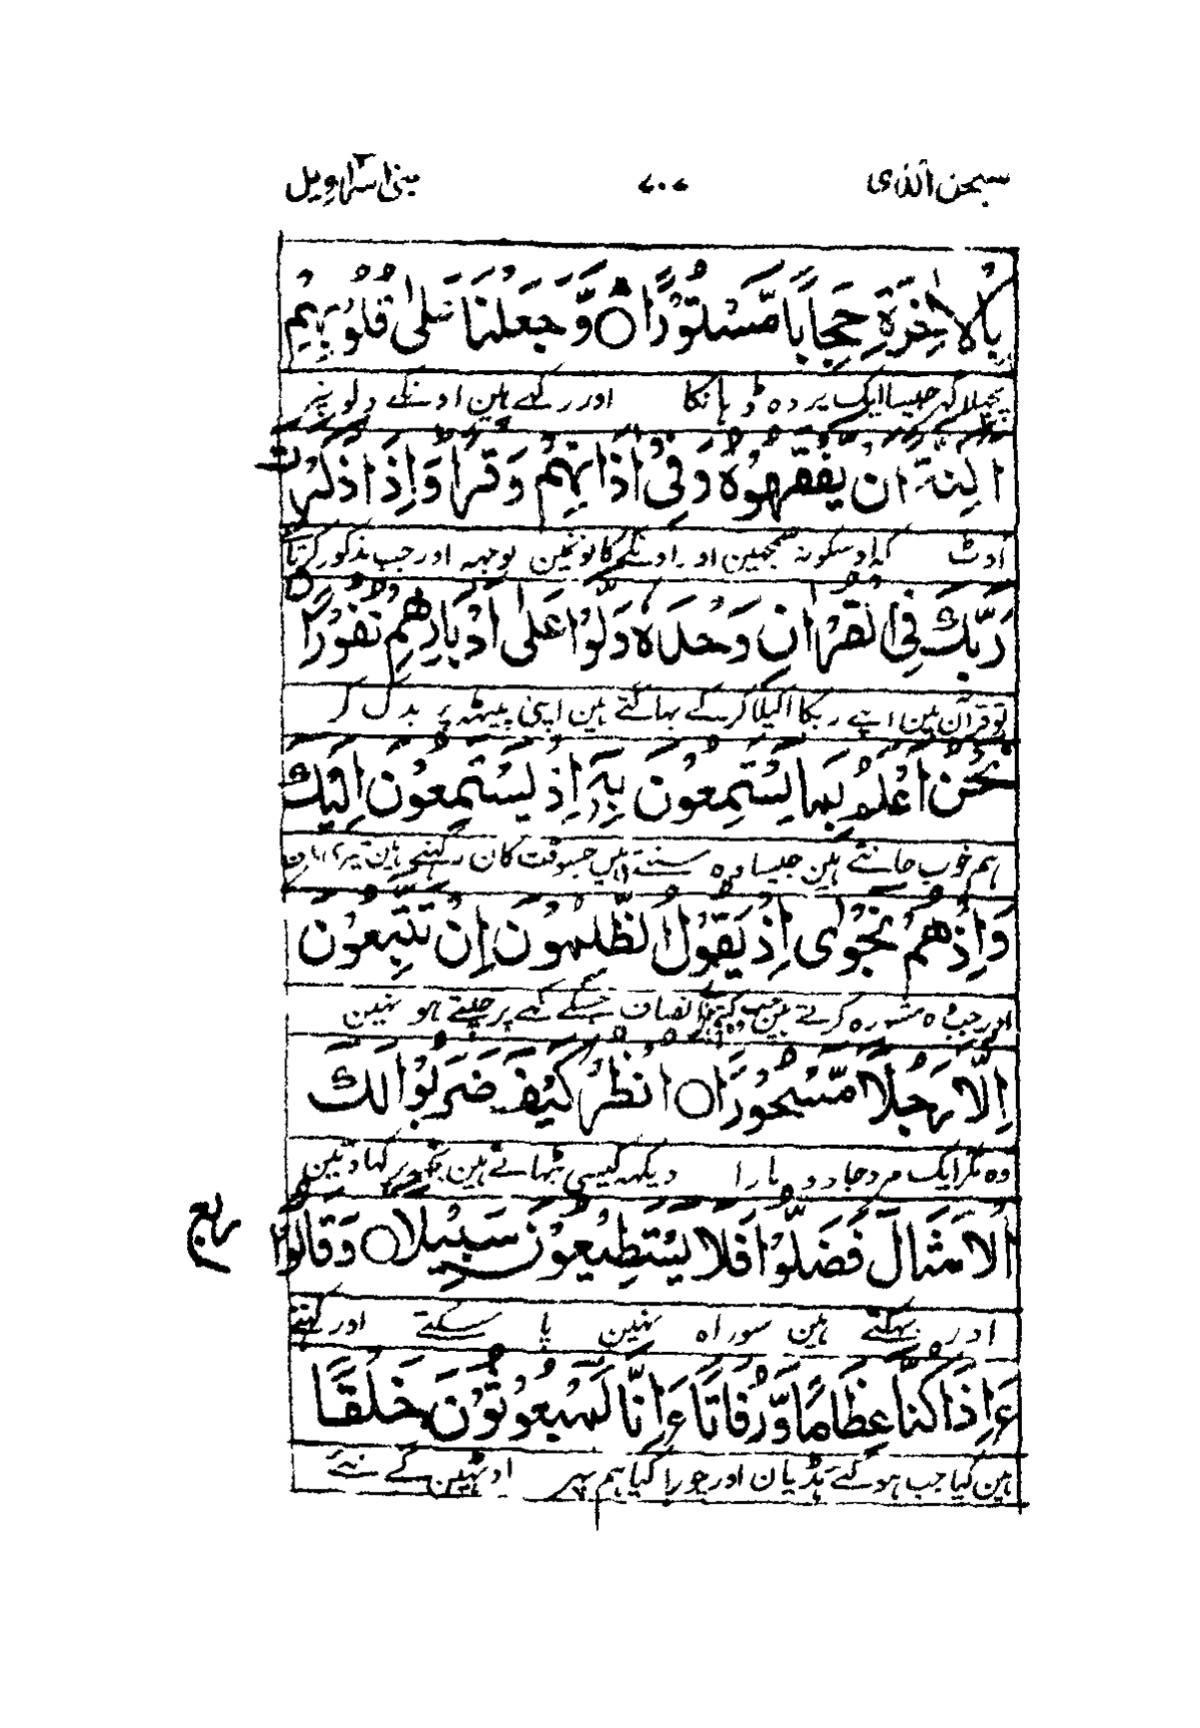 سبحٰن الّذی ۷۰۷ بنی اسرآویل
بِالْاٰخِرَةِ حِجَابًا مَّسْتُوْرًا ○ وَّجَعَلْنَا عَلٰی قُلُوْبِهِمْ
پچھلا گہر جیسا ایک پردہ ڈہانکا اور رکھے ہین اونکے دلونپر
اَكِنَّةً اَنْ يَّفْقَهُوْهُ وَفِیْٓ اٰذَانِهِمْ وَقْرًا وَاِذَا ذَكَرْتَ
اوٹ کہ اوسکو نہ سمجہین اور اونکے کانونمین بوجہہ اور جب مذکور کرتا
رَبَّكَ فِی الْقُرْاٰنِ وَحْدَهٗ وَلَّوْا عَلٰٓی اَدْبَارِهِمْ نُفُوْرًا ○
تو قرآن مین اپنے ربکا اکیلا کرکے بہاگتے ہین اپنی پیٹہہ پر بدک کر
نَحْنُ اَعْلَمُ بِمَا يَسْتَمِعُوْنَ بِهٖٓ اِذْ يَسْتَمِعُوْنَ اِلَيْكَ
ہم خوب جانتے ہین جیسا وہ سنتے ہین جسوقت کان رکہتے ہین تیری
وَاِذْ هُمْ نَجْوٰٓی اِذْ يَقُوْلُ الظّٰلِمُوْنَ اِنْ تَتَّبِعُوْنَ
اور جب وہ مشورہ کرتے ہین جب کہتے انصاف جسکے کہے پر چلتے ہو نہین
اِلَّا رَجُلًا مَّسْحُوْرًا ○ اُنْظُرْ كَيْفَ ضَرَبُوْا لَكَ
وہ مگر ایک مرد جادو مارا دیکہہ کیسی بٹہاتے ہین تجہہ پر کہاوتین
الْاَمْثَالَ فَضَلُّوْا فَلَا يَسْتَطِيْعُوْنَ سَبِيْلًا ○ وَقَالُوْٓا
ربع
اور بہکتے ہین سو راہ نہین پا سکتے اور کہتے
ءَاِذَا كُنَّا عِظَامًا وَّرُفَاتًا ءَاِنَّا لَمَبْعُوْثُوْنَ خَلْقًا
ہین کیا جب ہوگئے ہڈیان اور چورا کیا ہم پہر اوٹہین گے نئے